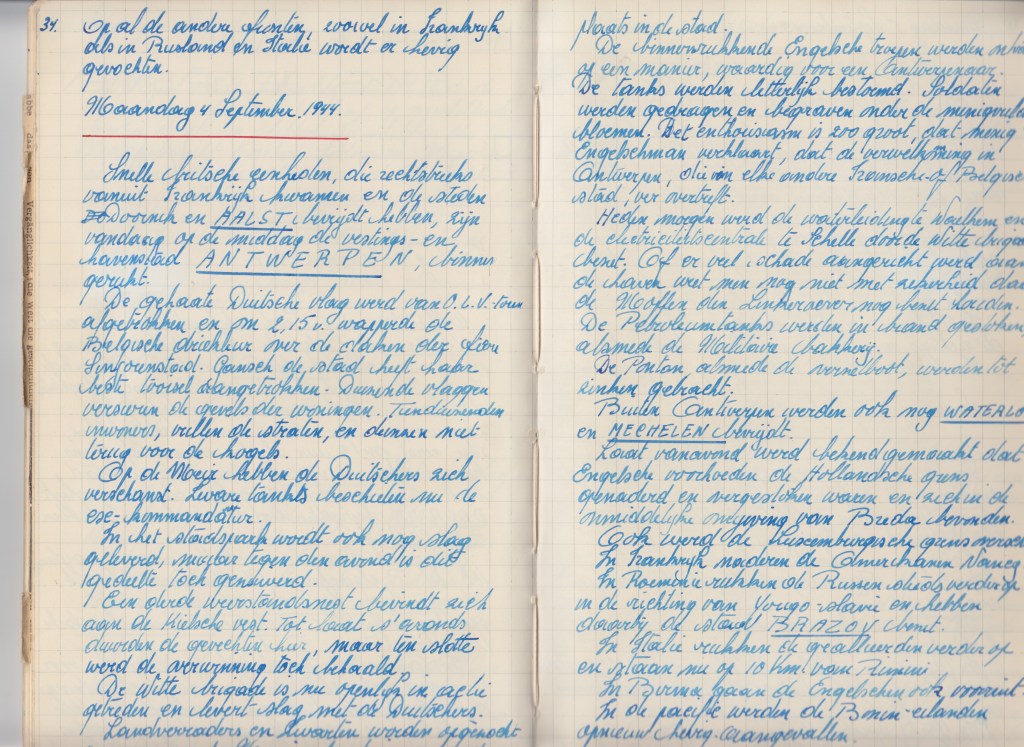 34.
Op al de andere fronten, zoowel in Frankrijk
als in Rusland en Italië wordt er hevig
gevochten.
Maandag 4 September 1944.
Snelle britsche eenheden, die rechtstreeks
vanuit Frankrijk kwamen en de steden
Doornik en AALST bevrijdt hebben, zijn
vandaag op de middag de vestings- en
havenstad ANTWERPEN, binnen
gerukt.
De gehaate Duitsche vlag werd van O.L.V.-toren
afgetrokken en om 2,15 u. wapperde de
Belgische driekleur over de daken der fiere
Sinjorenstad. Gansch de stad heeft haar
beste tooisel aangetrokken. Duizende vlaggen
versieren de gevels der woningen. Tienduizenden
inwoners, vullen de straten, en deinzen niet
terug voor de kogels.
Op de Meir hebben de Duitschers zich
verschanst. Zware tanks beschieten nu de
exe-kommandatur.
In het stadspark wordt ook nog slag
geleverd, maar tegen den avond is dit
gedeelte toch gezuiverd.
Een derde weerstandsnest bevindt zich
aan de Kielsche vest. Tot laat s'avonds
duurden de gevechten hier, maar ten slotte
werd de overwinning toch behaald.
De Witte brigade is nu openlijk in actie
getreden en levert slag met de Duitschers.
Landverraders en zwarten worden opgezocht
plaats in de stad.
De binnenrukkende Engelsche troepen werden
op een manier, waardig voor een Antwerpenaar.
De tanks werden letterlijk bestormd. Soldaten
werden gedragen en begraven onder de menigvuldige
bloemen. Het enthousiasm is zoo groot, dat menig
Engelschman verklaart, dat de verwelkoming in
Antwerpen, die in elke andere Fransche- of Belgische
stad, ver overtreft.
Heden morgen werd de waterleiding te Waelhem en
de electriciteitscentrale te Schelle door de Witte brigade
bezet. Of er veel schade aangericht werd aan
de haven weet men nog niet met zekerheid daar
de Moffen den Linkeroever nog bezet houden.
De Petroleumtanks werden in brand gestoken
alsmede de Militaire bakkerij.
De Ponton alsmede de overzetboot, werden tot
zinken gebracht.
Buiten Antwerpen werden ook nog WATERLOO
en MECHELEN bevrijdt.
Laat vanavond werd bekend gemaakt dat
Engelsche voorhoeden de Hollandsche grens
genaderd en overgestoken waren en zich in de
onmiddelijke omgeving van Breda bevonden.
Ook werd de Luxemburgsche grens
In Frankrijk naderen de Amerikanen Nancy
In Roemenië rukken de Russen steeds verder op
in de richting van Yougo-slavië en hebben
daarbij de stad BRAZOV bezet.
In Italië rukken de geallieerden verder op
en staan nu op 10 km van Rimini.
In Birma gaan de Engelschen ook vooruit.
In de pacific werden de Bonin-eilanden
opnieuw hevig aangevallen.